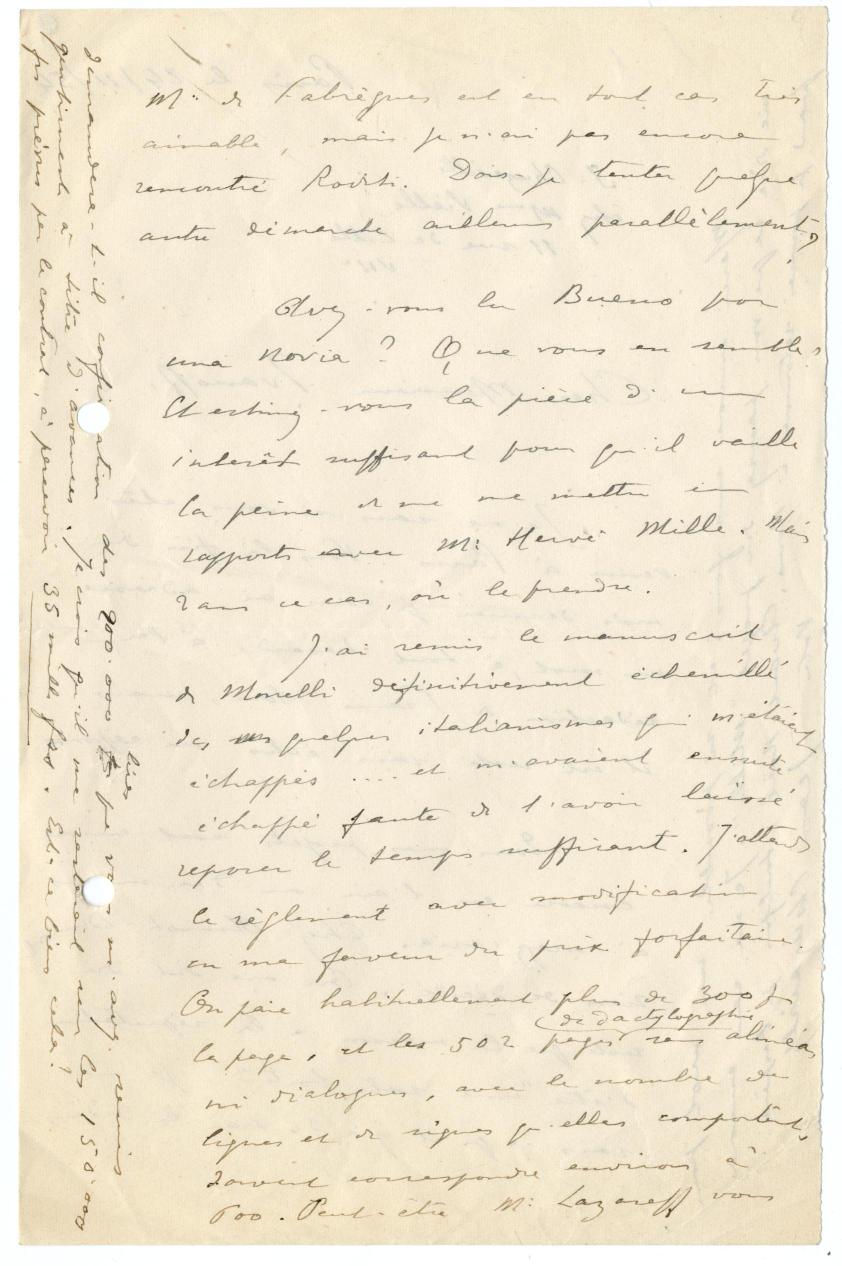 Mr. de Fabrègues est en tout cas très
aimable, mais je n'ai pas encore
rencontré Roditi. Dois-je tenter quelque
autre démarche ailleurs parallèlement?
Avez-vous lu Bueno por
una novia? Que vous en semble?
Et estimez-vous la pièce d'un
intérêt suffisant pour qu'il vaille
la peine de me mettre en
rapports avec Mr. Hervé Mille. Mais
dans ce cas, où le prendre.
J'ai remis le manuscrit
de Monelli définitivement échenillé
des quelques italianismes qui m'étaient
échappés .... et m'avaient ensuite
échappé faute de l'avoir laissé
reposer le temps suffisant. J'attends
le règlement avec modification
en ma faveur du prix forfaitaire.
On paie habituellement plus de 300 f
la page, et les 502 pages de dactylographie sans alinéas
ni dialogues, avec le nombre de
lignes et de signes qu'elles comportent,
doivent correspondre environ à
600. Peut-être Mr. Lazareff vous
demandera-t-il confirmation des 900.000 lires que vous m'avez remis
gentiment à titre d'avances. Je crois qu'il me restait sur les 150.000
frs prévus par le contrat, à percevoir 35 mille frs. Est-ce bien cela?